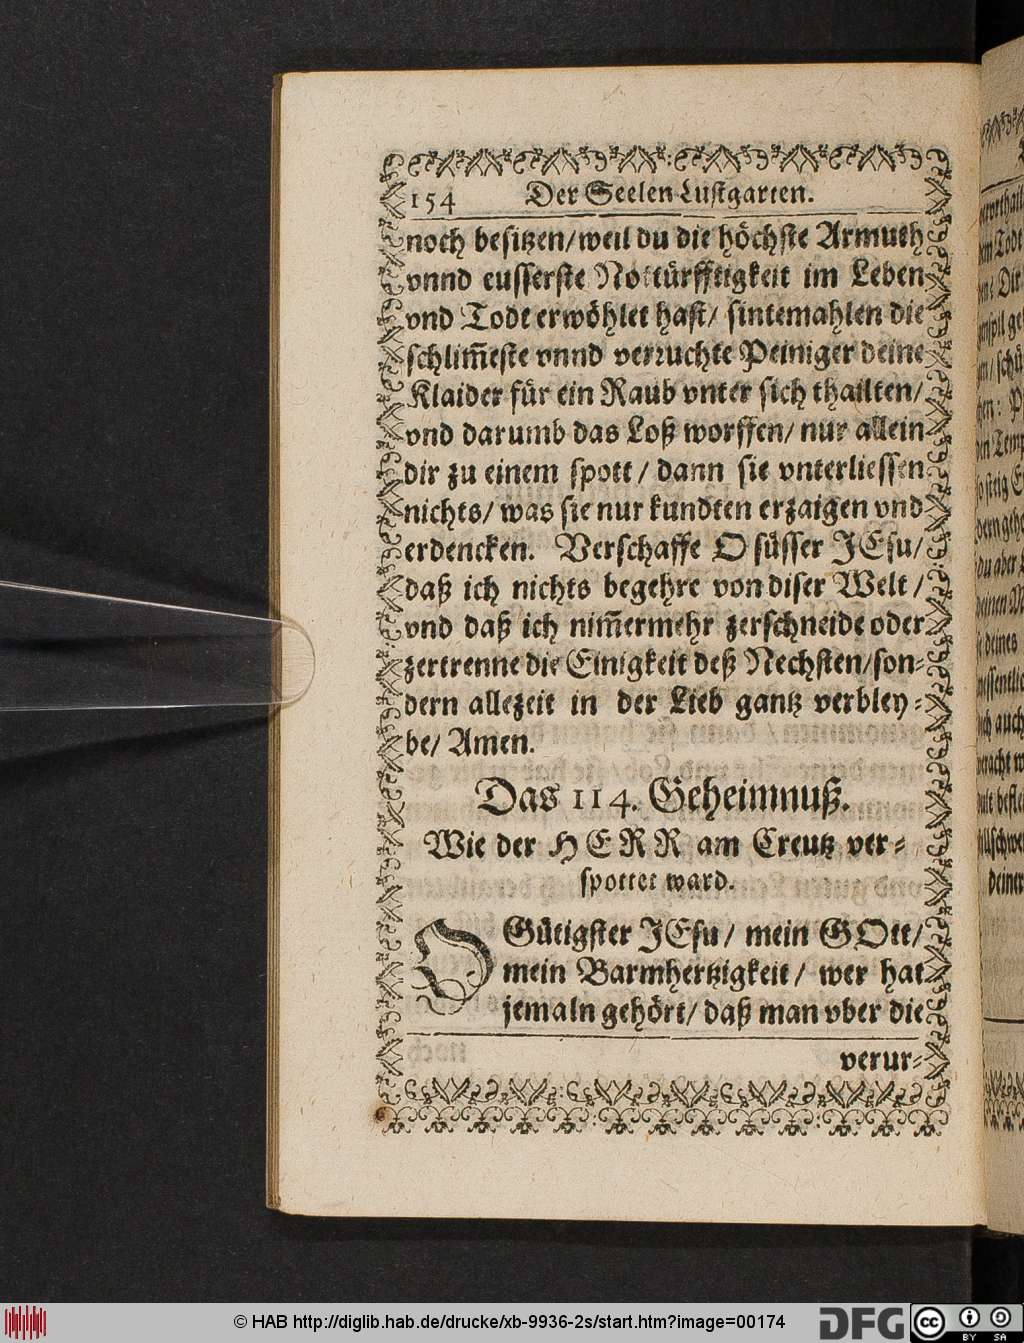 154 Der Seelen Lustgarten.
noch besitzen/ weil du die höchste Armuth
vnnd eusserste Notürfftigkeit im Leben
vnd Todt erwöhlet hast/ sintemahlen die
schlim̃este vnnd verruchte Peiniger deine
Klaider für ein Raub vnter sich thailten/
vnd darumb das Loß worffen/ nur allein
dir zu einem spott/ dann sie vnterliessen
nichts/ was sie nur kundten erzaigen vnd
erdencken. Verschaffe O süsser JEsu/
daß ich nichts begehre von diser Welt/
vnd daß ich nim̃ermehr zerschneide oder
zertrenne die Einigkeit deß Nechsten/ son-
dern allezeit in der Lieb gantz verbley-
be/ Amen.
Das 114. Geheimnuß.
Wie der HERR am Creutz ver-
spottet ward.
O Gütigster JEsu/ mein GOtt/
mein Barmhertzigkeit/ wer hat
jemaln gehört/ daß man vber die
verur-
© HAB http://diglib.hab.de/drucke/xb-9936-2s/start.htm?image=00174
DFG
cc BY SA